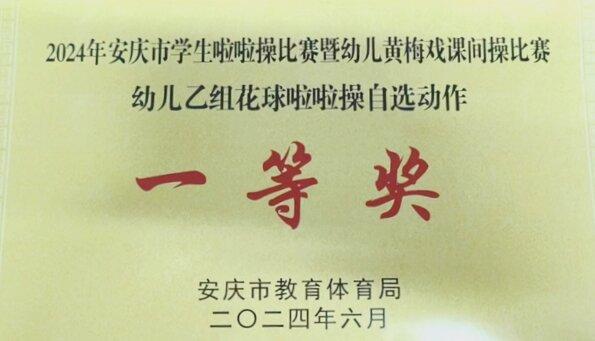 2024年安庆市学生啦啦操比赛暨幼儿黄梅戏课间操比赛
幼儿乙组花球啦啦操自选动作
一等奖
安庆市教育体育局
二〇二四年六月